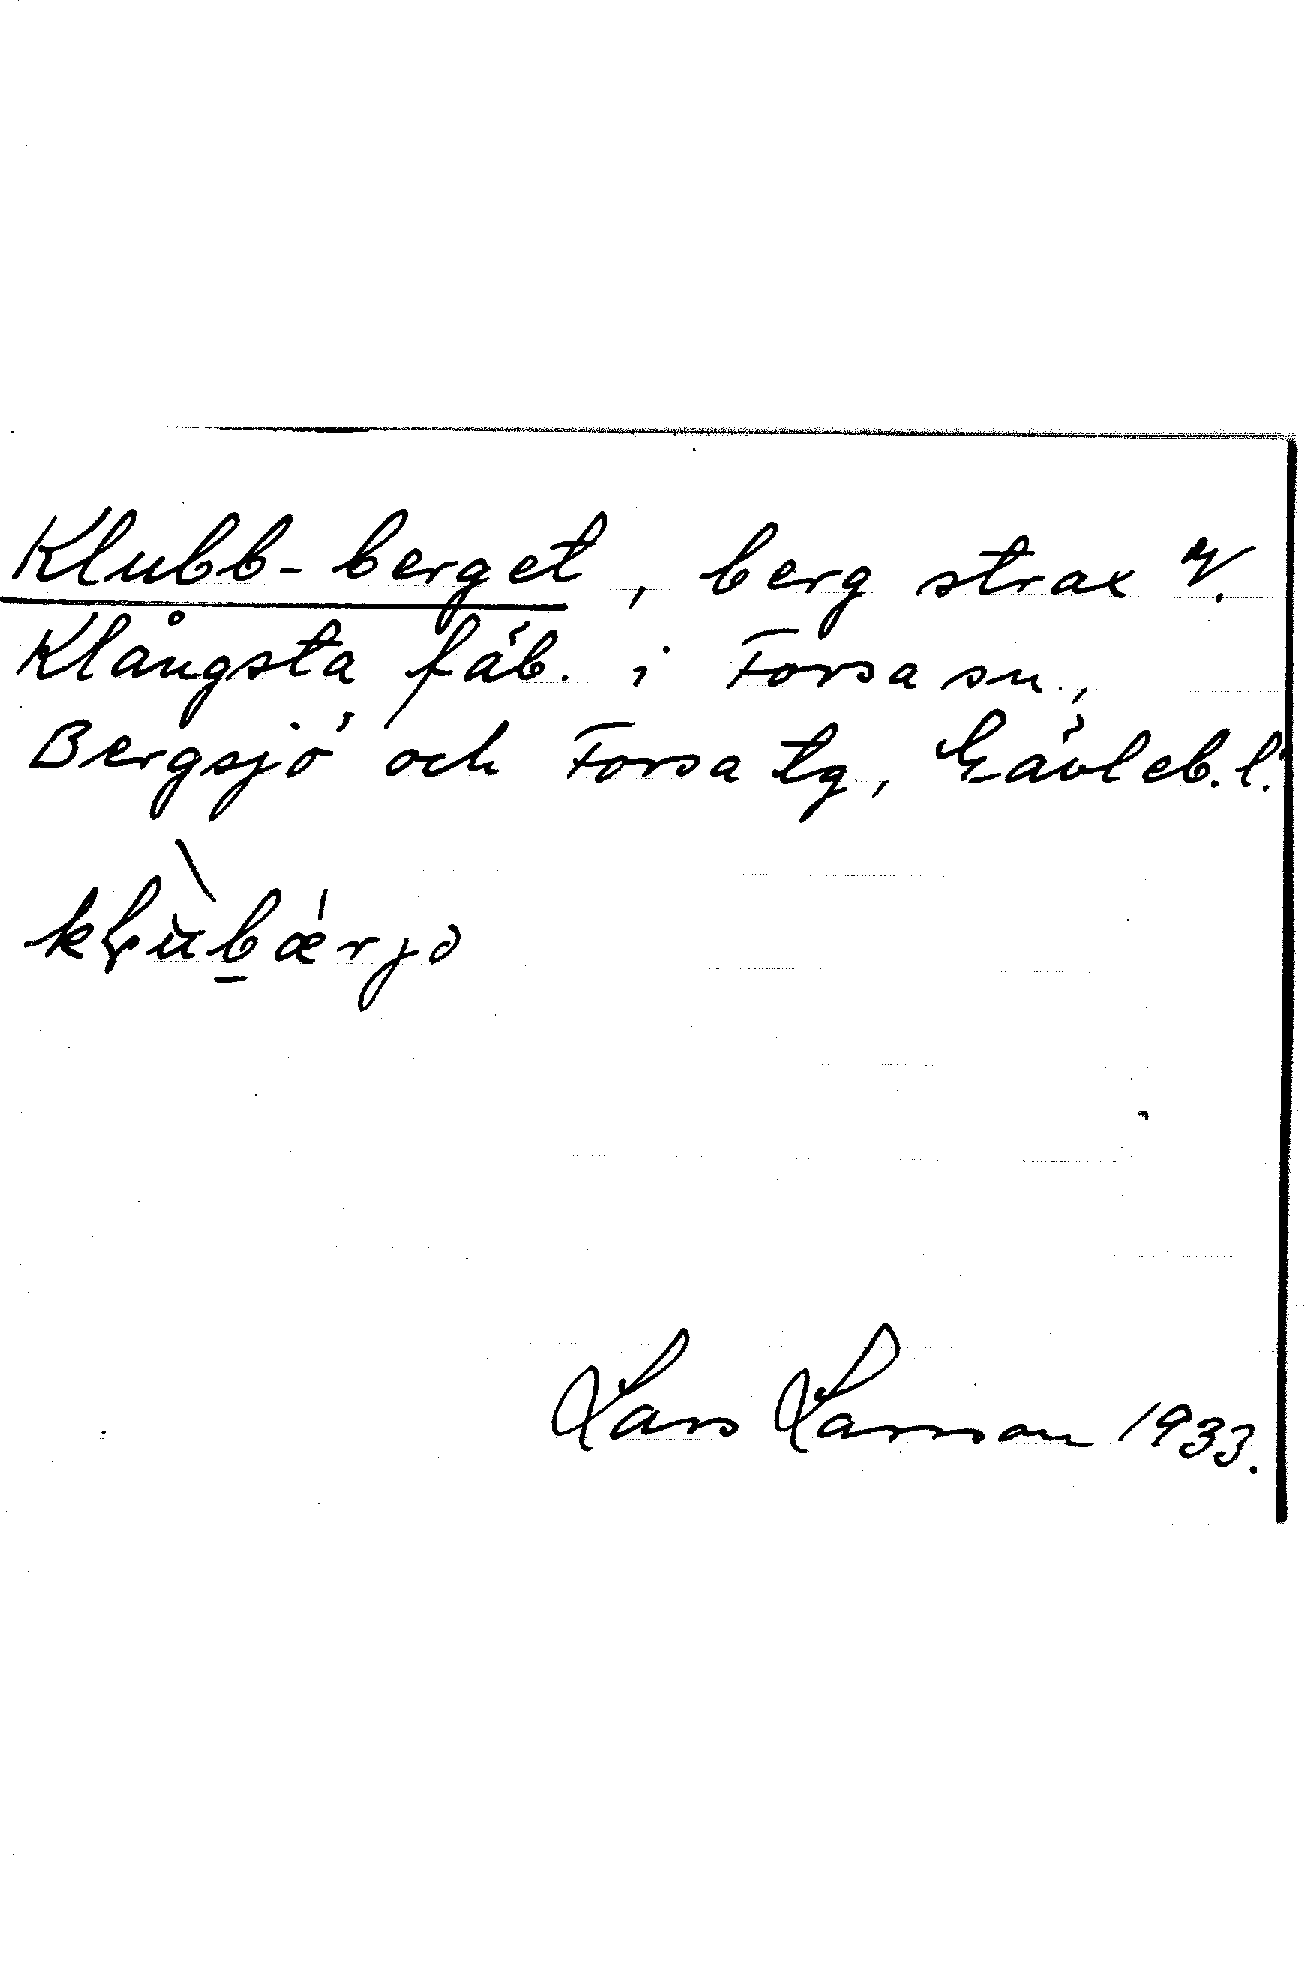 Klubb-berget, berg strax V.
Klångsta fäb. i Forsa sn.,
Bergsjö och Forsa tg, Gävleb. l.
Lars Larsson 1933.